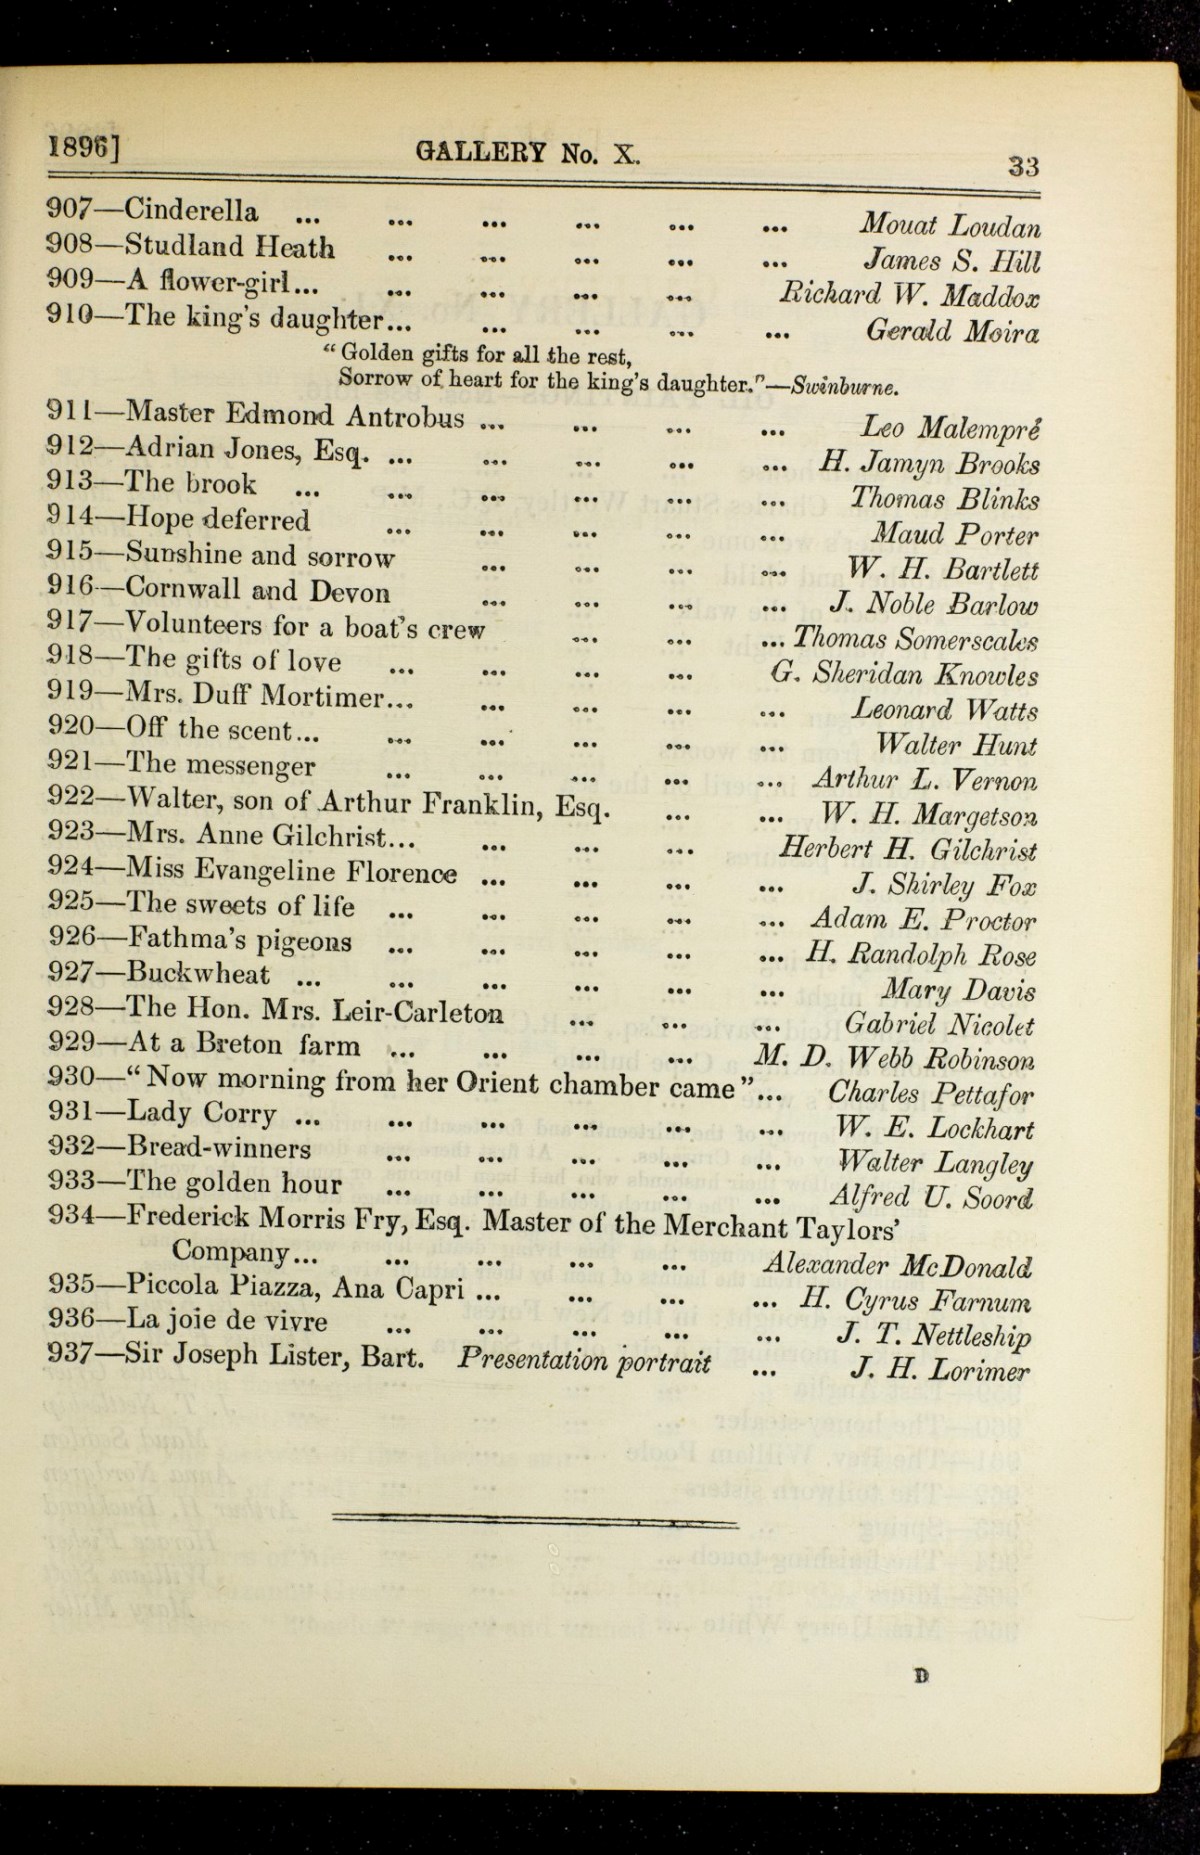 1896] GALLERY No. X. 33
907—Cinderella ... ... ... ... ... ... Mouat Loudan
908—Studland Heath ... ... ... ... ... James S. Hill
909—A flower-girl... ... ... ... ... Richard W. Maddox
910—The king's daughter... ... ... ... ... Gerald Moira
"Golden gifts for all the rest,
Sorrow of heart for the king's daughter."—Swinburne.
911—Master Edmond Antrobus ... ... ... ... Leo Malempré
912—Adrian Jones, Esq. ... ... ... ... ... H. Jamyn Brooks
913—The brook ... ... ... ... ... ... Thomas Blinks
914—Hope deferred ... ... ... ... ... Maud Porter
915—Sunshine and sorrow ... ... ... ... W. H. Bartlett
916—Cornwall and Devon ... ... ... ... J. Noble Barlow
917—Volunteers for a boat's crew ... ... ... Thomas Somerscales
918—The gifts of love ... ... ... ... G. Sheridan Knowles
919—Mrs. Duff Mortimer... ... ... ... ... Leonard Watts
920—Off the scent... ... ... ... ... ... Walter Hunt
921—The messenger ... ... ... ... ... Arthur L. Vernon
922—Walter, son of Arthur Franklin, Esq. ... ... W. H. Margetson
923—Mrs. Anne Gilchrist... ... ... ... Herbert H. Gilchrist
924—Miss Evangeline Florence ... ... ... ... J. Shirley Fox
925—The sweets of life ... ... ... ... ... Adam E. Proctor
926—Fathma's pigeons ... ... ... ... ... H. Randolph Rose
927—Buckwheat ... ... ... ... ... ... Mary Davis
928—The Hon. Mrs. Leir-Carleton ... ... ... Gabriel Nicolet
929—At a Breton farm ... ... ... ... M. D. Webb Robinson
930—"Now morning from her Orient chamber came"... Charles Pettafor
931—Lady Corry ... ... ... ... ... ... W. E. Lockhart
932—Bread-winners ... ... ... ... ... Walter Langley
933—The golden hour ... ... ... ... ... Alfred U. Soord
934—Frederick Morris Fry, Esq. Master of the Merchant Taylors'
Company... ... ... ... ... Alexander McDonald
935—Piccola Piazza, Ana Capri ... ... ... ... H. Cyrus Farnum
936—La joie de vivre ... ... ... ... ... J. T. Nettleship
937—Sir Joseph Lister, Bart. Presentation portrait ... J. H. Lorimer
D